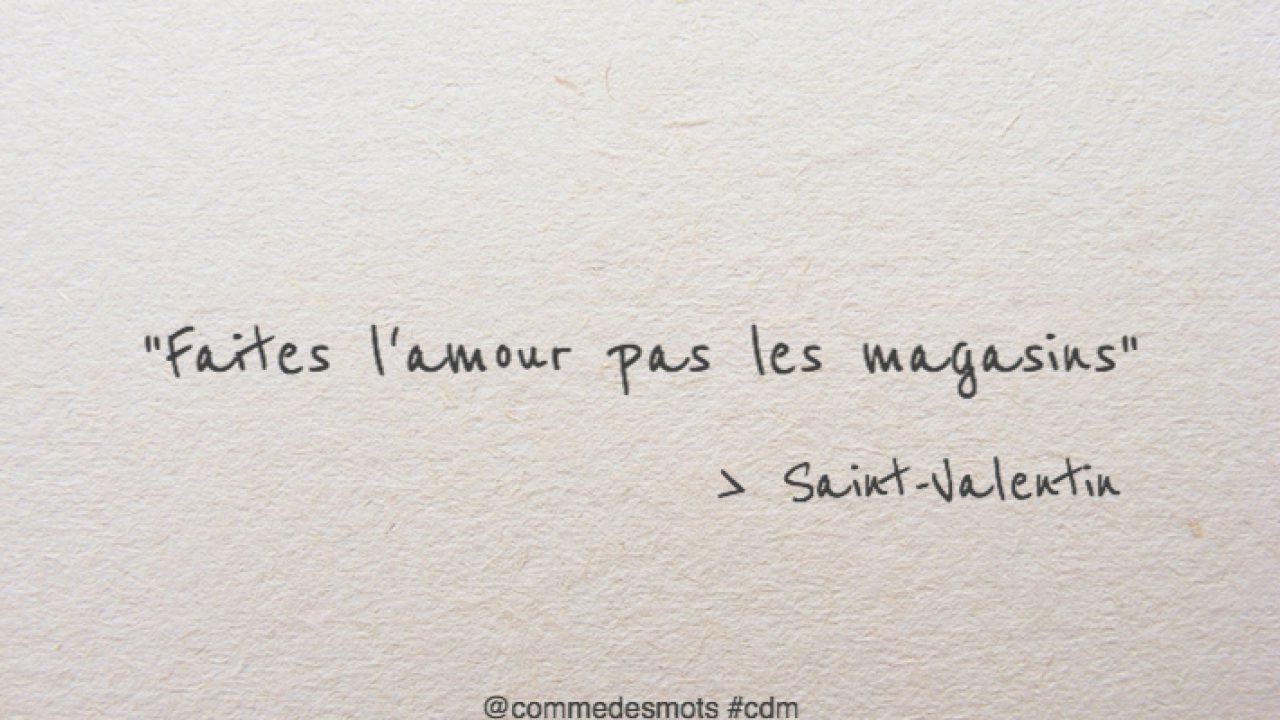 "Faites l'amour pas les magasins"
> Saint-Valentin
@commedesmots #cdm